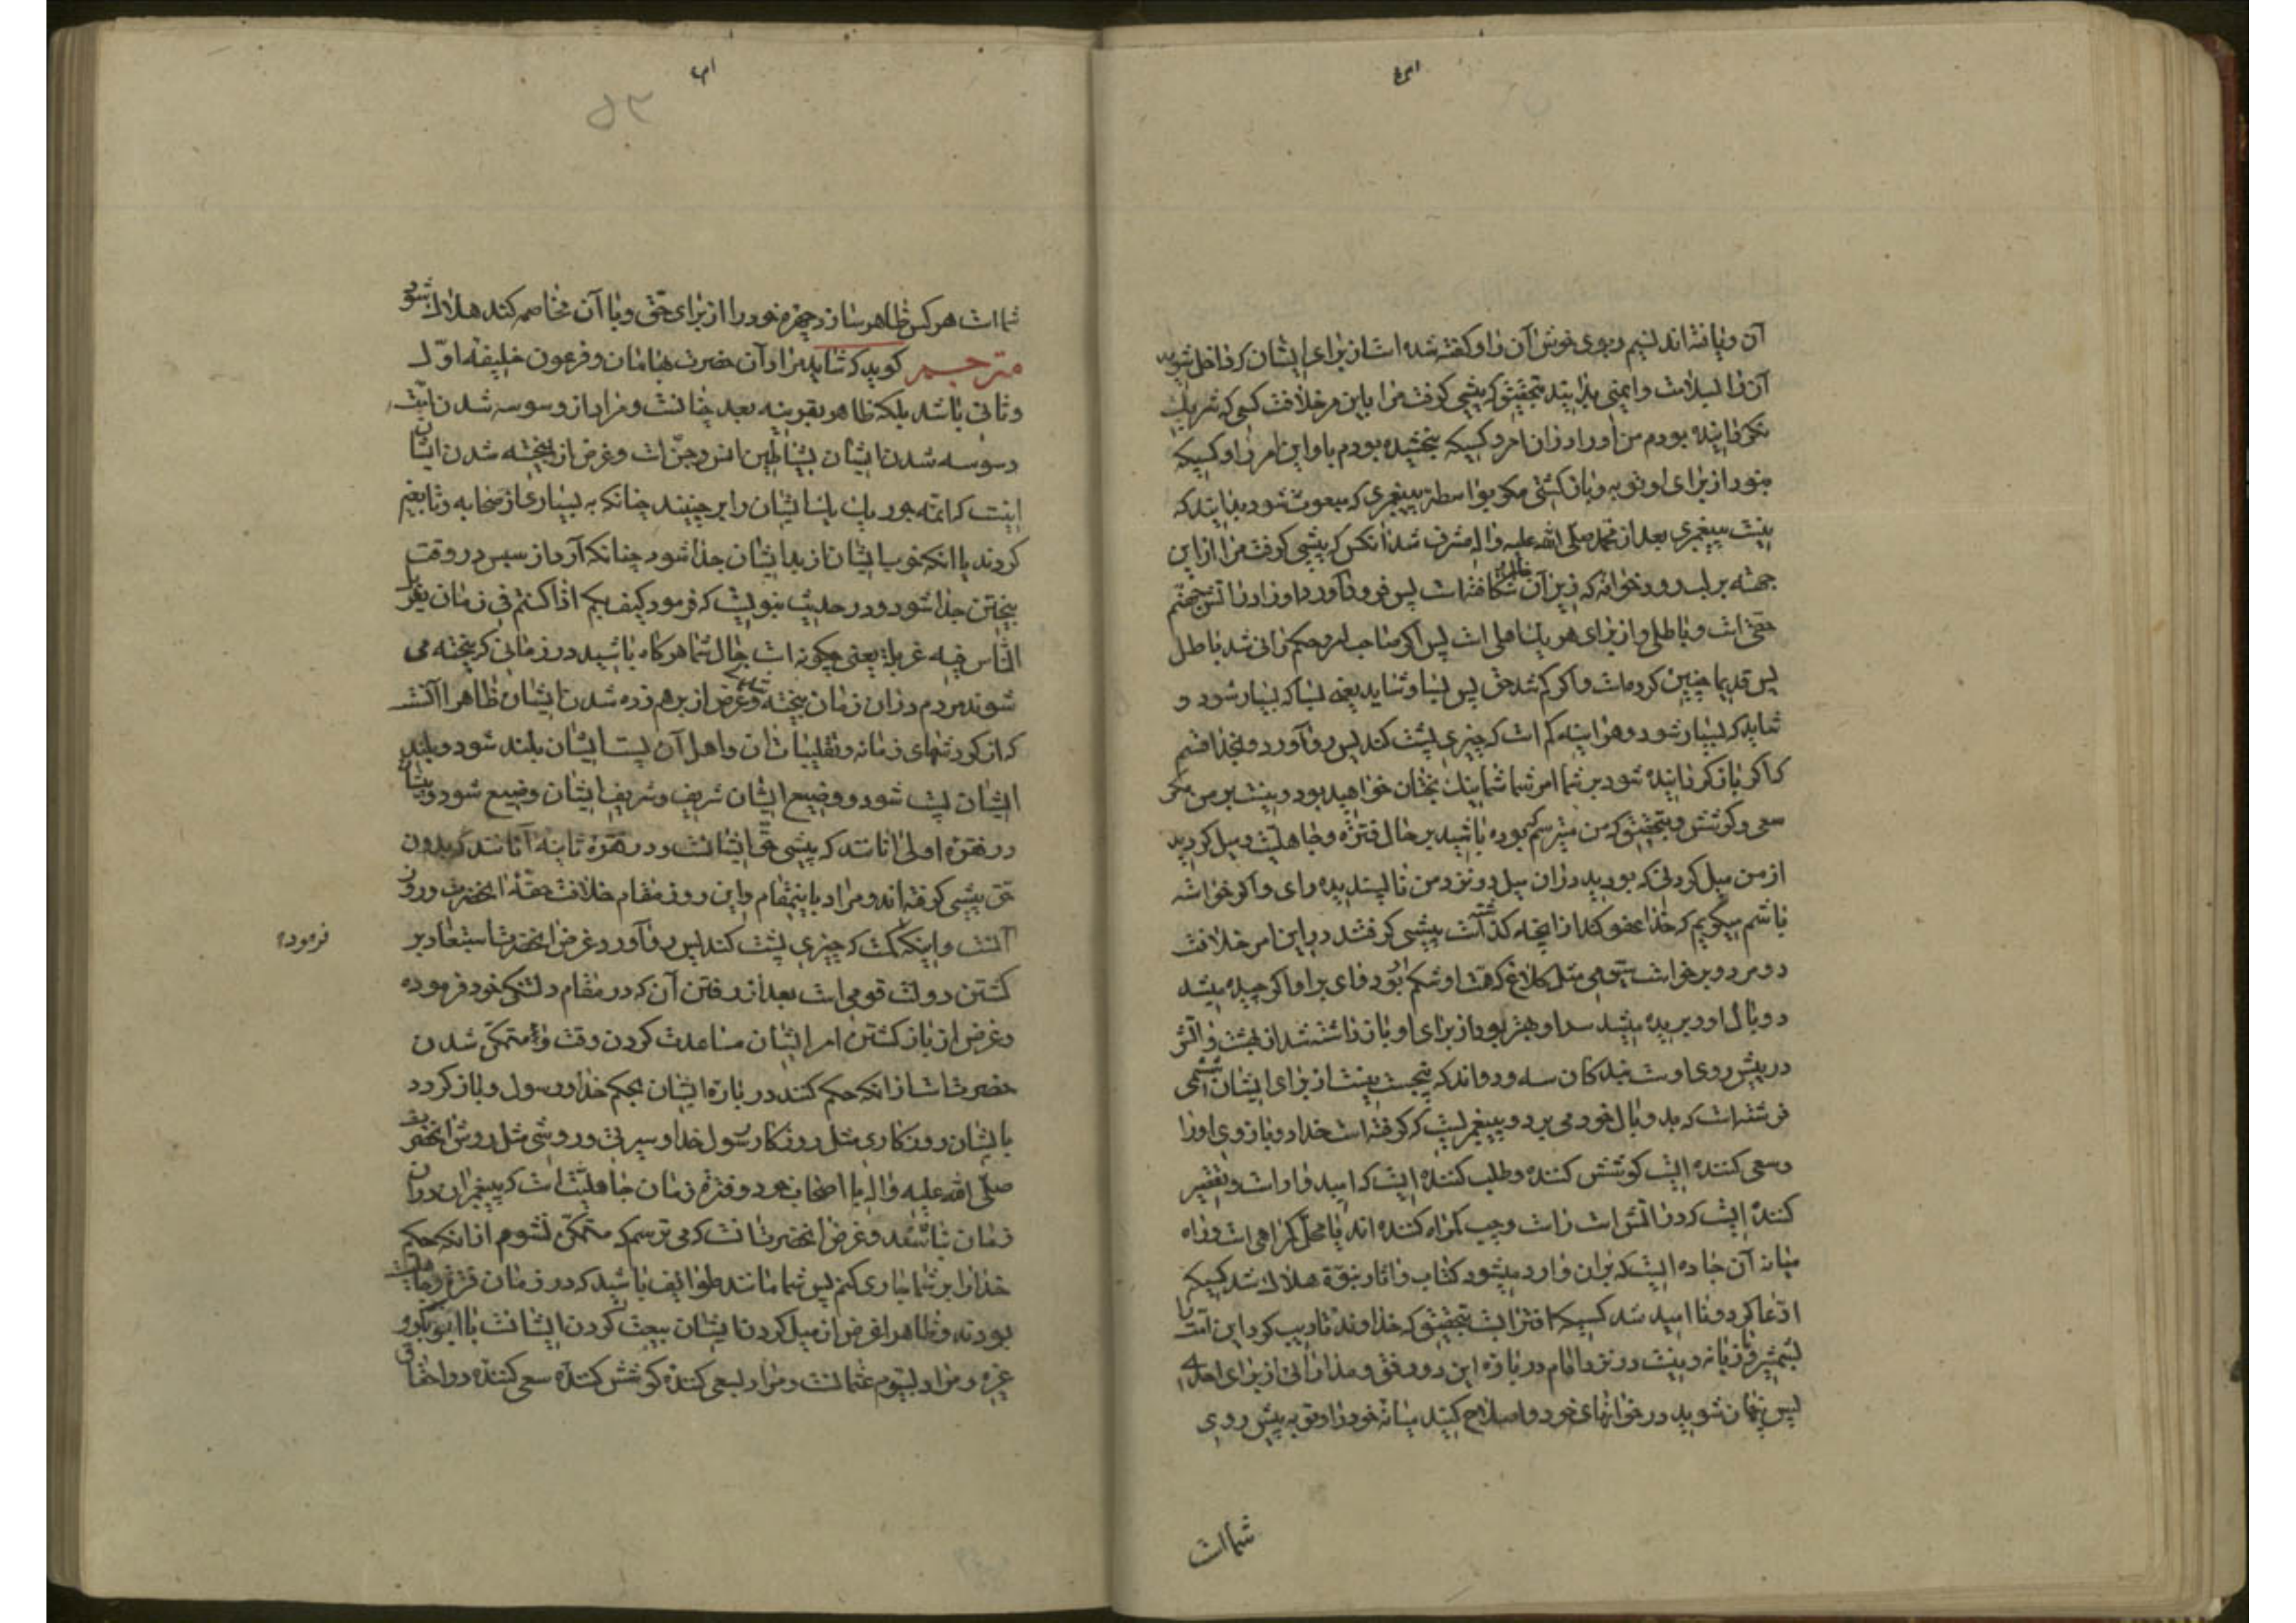 آن و یافته‌اند نسیم و بوی خوش آن را و گفته شده است از برای ایشان که داخل شوید
آن را بسلامت و ایمنی بدانید بتحقیق که پیشی گرفت مرا باین امر خلافت کسی که شریک
نگردانیده بودم من او را در آن امر و کسیکه نبخشیده بودم باو این امر را و کسیکه
نبود از برای او توبه و بازگشتی مگر بواسطه پیغمبری که مبعوث شود بدانید که
نیست پیغمبری بعد از محمد صلی الله علیه و اله مشرف شد آنکس که پیشی گرفت مرا از این
جهته بر لب رودخوانه که زیر آن شکافته است پس فرود آورد او را در آتش جهنم
حقی است و باطلی و از برای هر یک اهلی است پس اگر صاحب امر و حکم رانی شد باطل
پس قدیما چنین کرده است و اگر کم شد حق پس بسا و شاید یعنی بسا که بسیار شود و
شاید که بسیار شود و هراینه کم است که چیزی پشت کند پس رو آورد و بخدا قسم
که اگر بازگردانیده شود بر شما امر شما شما نیک بختان خواهید بود و نیست بر من مگر
سعی و کوشش و بتحقیق که من میترسم که بوده باشید بر حال فترة و جاهلیت و میل کردید
از من میل کردنی که بودید در آن میل در نزد من ناپسندیده رای و اگر خواسته
باشم میگویم که خدا عفو کند از آنچه گذشت پیشی گرفتند در این امر خلافت
دو مرد و برخواست سیومی مثل کلاغ که همت او شکم او بود وای بر او اگر چیده میشد
دو بال او و بریده میشد سر او بهتر بود از برای او بازداشته شد از بهشت و آتش
در پیش روی اوست بندگان سه و دواند که پنجست نیست از برای ایشان ششمی
فرشته‌است که بدو بال خود می برد و پیغمبریست که گرفته است خدا دو بازوی او را
و سعی کننده ایست کوشش کننده و طلب کننده ایست که امیدوار است و تقصیر
کننده ایست که در آتش است راست و چپ گمراه کننده اند یا محل گمراهی است و راه
میانه آن جاده ایست که بر آن وارد میشود کتاب و آثار نبوة هلاک شد کسیکه
ادعا کرد و ناامید شد کسیکه افترا بست بتحقیق که خداوند تادیب کرد این امت را
بشمشیر و تازیانه و نیست در نزد امام در باره این دو رفق و مدارائی از برای احدی
پس پنهان شوید در خوانهای خود و اصلاح کنید میانه خود را و توبه پیش روی
شما است
شما است هر کس ظاهر سازد چهره خود را از برای حق و با آن مخاصمه کند هلاک شود
مترجم گوید که شاید مراد آن حضرت بهامان و فرعون خلیفه اول
و ثانی باشد بلکه ظاهر بقرینه بعد چنانست و مراد از وسوسه شدن امت
وسوسه شدن ایشان بشیاطین انس و جن است و غرض از بیخته شدن ایشان
اینست که ائمه جور یک یک ایشان را برچینند چنانکه به بسیاری از صحابه و تابعین
کردند یا انکه خوب ایشان از بد ایشان جدا شود چنانکه آرد از سبوس در وقت
بیختن جدا شود و در حدیث نبویست که فرمود کیف بکم اذا کنتم فی زمان یغربل
الناس فیه غربلة یعنی چگونه است حال شما هرگاه باشید در زمانی که بیخته می
شوند مردم در آن زمان بیخته شدنی و غرض از برهم زده شدن ایشان ظاهرا آنست
که از گردشهای زمانه و تقلیبات آن و اهل آن پست ایشان بلند شود و بلند
ایشان پست شود و وضیع ایشان شریف و شریف ایشان وضیع شود و پیشان
در فقره اولی آنانند که پیشی حق ایشانست و در فقره ثانیه آنانند که بدون
حق پیشی گرفته‌اند و مراد باینمقام و این روز مقام خلافت حقه انحضرت و روز
آنست و اینکه کمست که چیزی پشت کند پس رو آورد غرض انحضرت استبعاد بر
فرموده
گشتن دولت قومی است بعد از رفتن آن که در مقام دلتنگی خود فرموده
و غرض از بازگشتن امر ایشان مساعدت کردن وقت و متمکن شدن
حضرتست از انکه حکم کنند در باره ایشان بحکم خدا و رسول و بازگردد
بایشان روزگاری مثل روزگار رسول خدا و سیرتی و روشی مثل روش انحضرت
صلی الله علیه و اله با اصحاب خود و فترة زمان جاهلیت است که پیغمبران در آن
زمان نباشند و غرض انحضرت آنست که می ترسم که متمکن نشوم از انکه حکم
خدا را بر شما جاری کنم پس شما مانند طوایف باشید که در زمان فترة و جاهلیت
بودند و ظاهرا غرض از میل کردن ایشان بیعت کردن ایشانست با ابوبکر و
غیره و مراد بسیوم عثمانست و مراد بسعی کننده کوشش کننده سعی کننده در احقاق